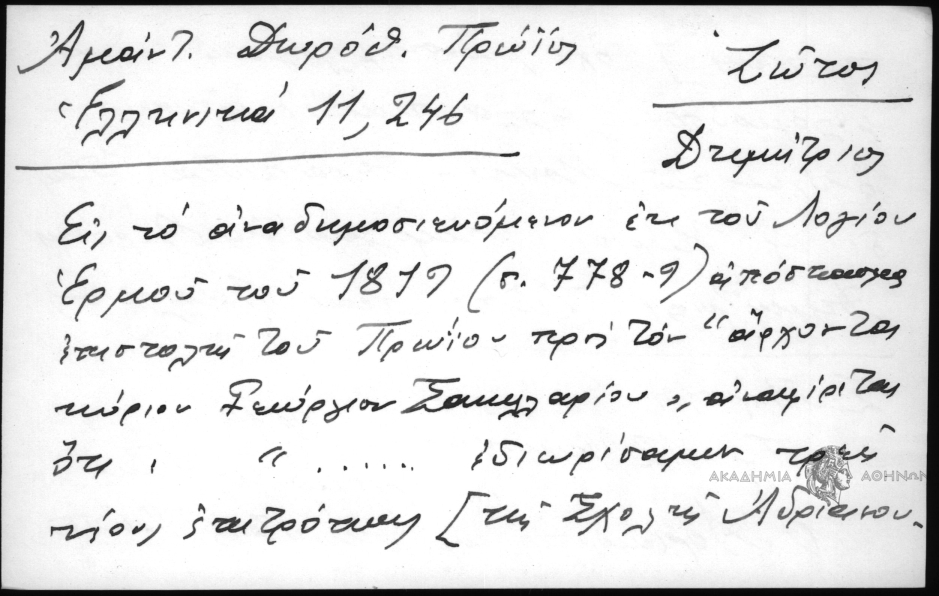 Ἀμάντ. Δωρόθ. Πρώϊος
Ζῶτος
Ἑλληνικά 11, 246
Δημήτριος
Εἰς τό ἀναδημοσιευόμενον ἐκ τοῦ Λογίου
Ἑρμοῦ τοῦ 1819 (σ. 778-9) ἀπόσπασμα
ἐπιστολῆς τοῦ Πρωΐου πρός τόν "ἄρχοντα
κύριον Γεώργιον Σακελλαρίου", ἀναφέρεται
ὅτι : "...... ἐδιωρίσαμεν τρεῖς
ΑΚΑΔΗΜΙΑ ΑΘΗΝΩΝ
νέους ἐπιτρόπους [τῆς Σχολῆς Ἀδριανου-